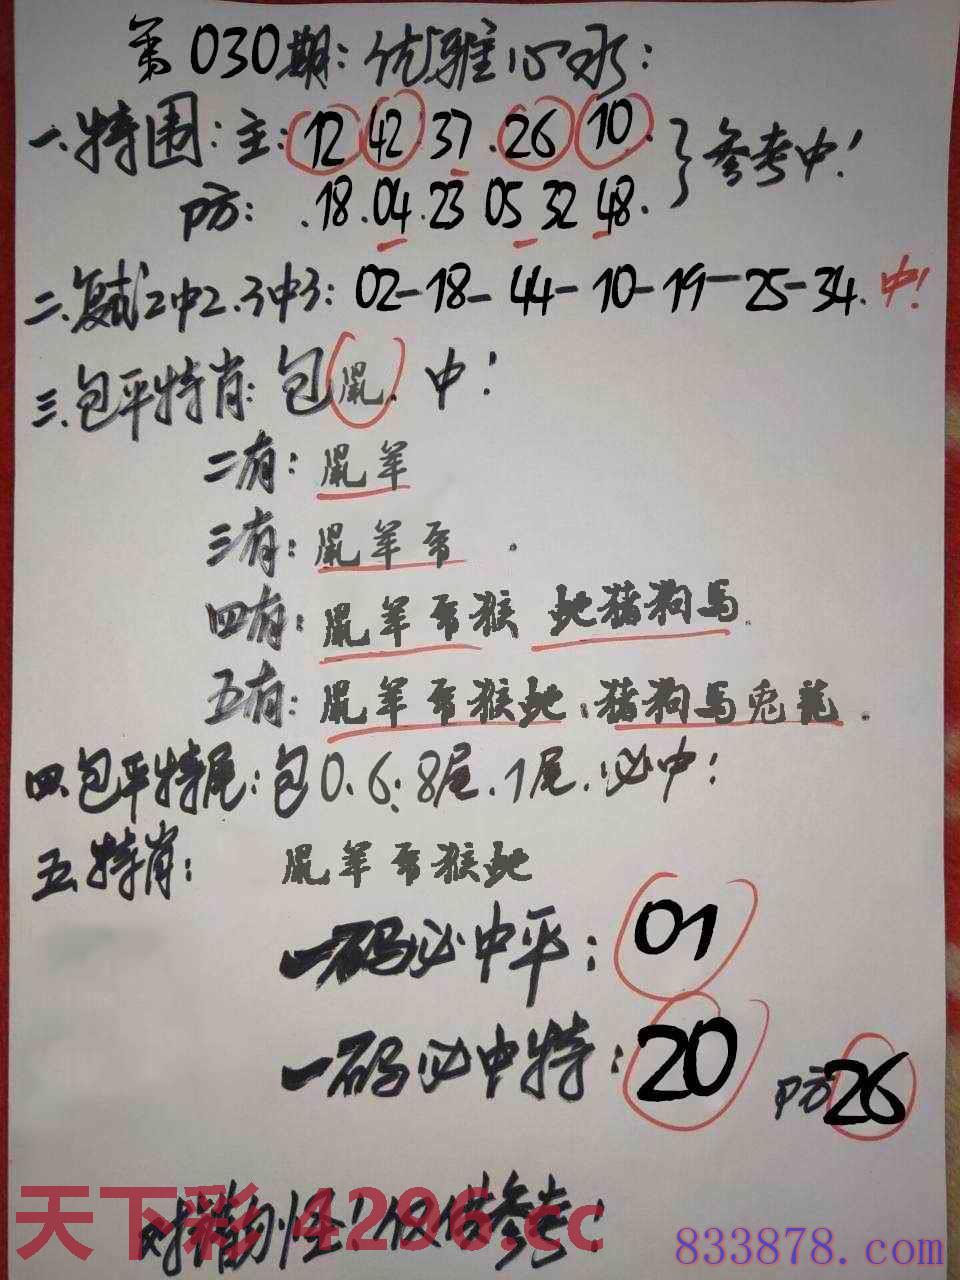 第030期:优雅心水:
一.特围:主:12 42.37.26 10.
参考中!
防:.18.04.23 05 32 48.
二.复式2中2.3中3:02-18-44-10-19-25-34.中!
三.包平特肖:包鼠.中!
二有:鼠羊
三有:鼠羊 .
四有:鼠羊 猴 蛇猪狗马.
五有:鼠羊 猴蛇:猪狗马兔龙.
四.包平特尾:包0.6:8尾.1尾.必中:
五.特肖:鼠羊 猴蛇
一码必中平:01
一码必中特:20 防26
天下彩 4296.cc
仅供参考!
833878.com